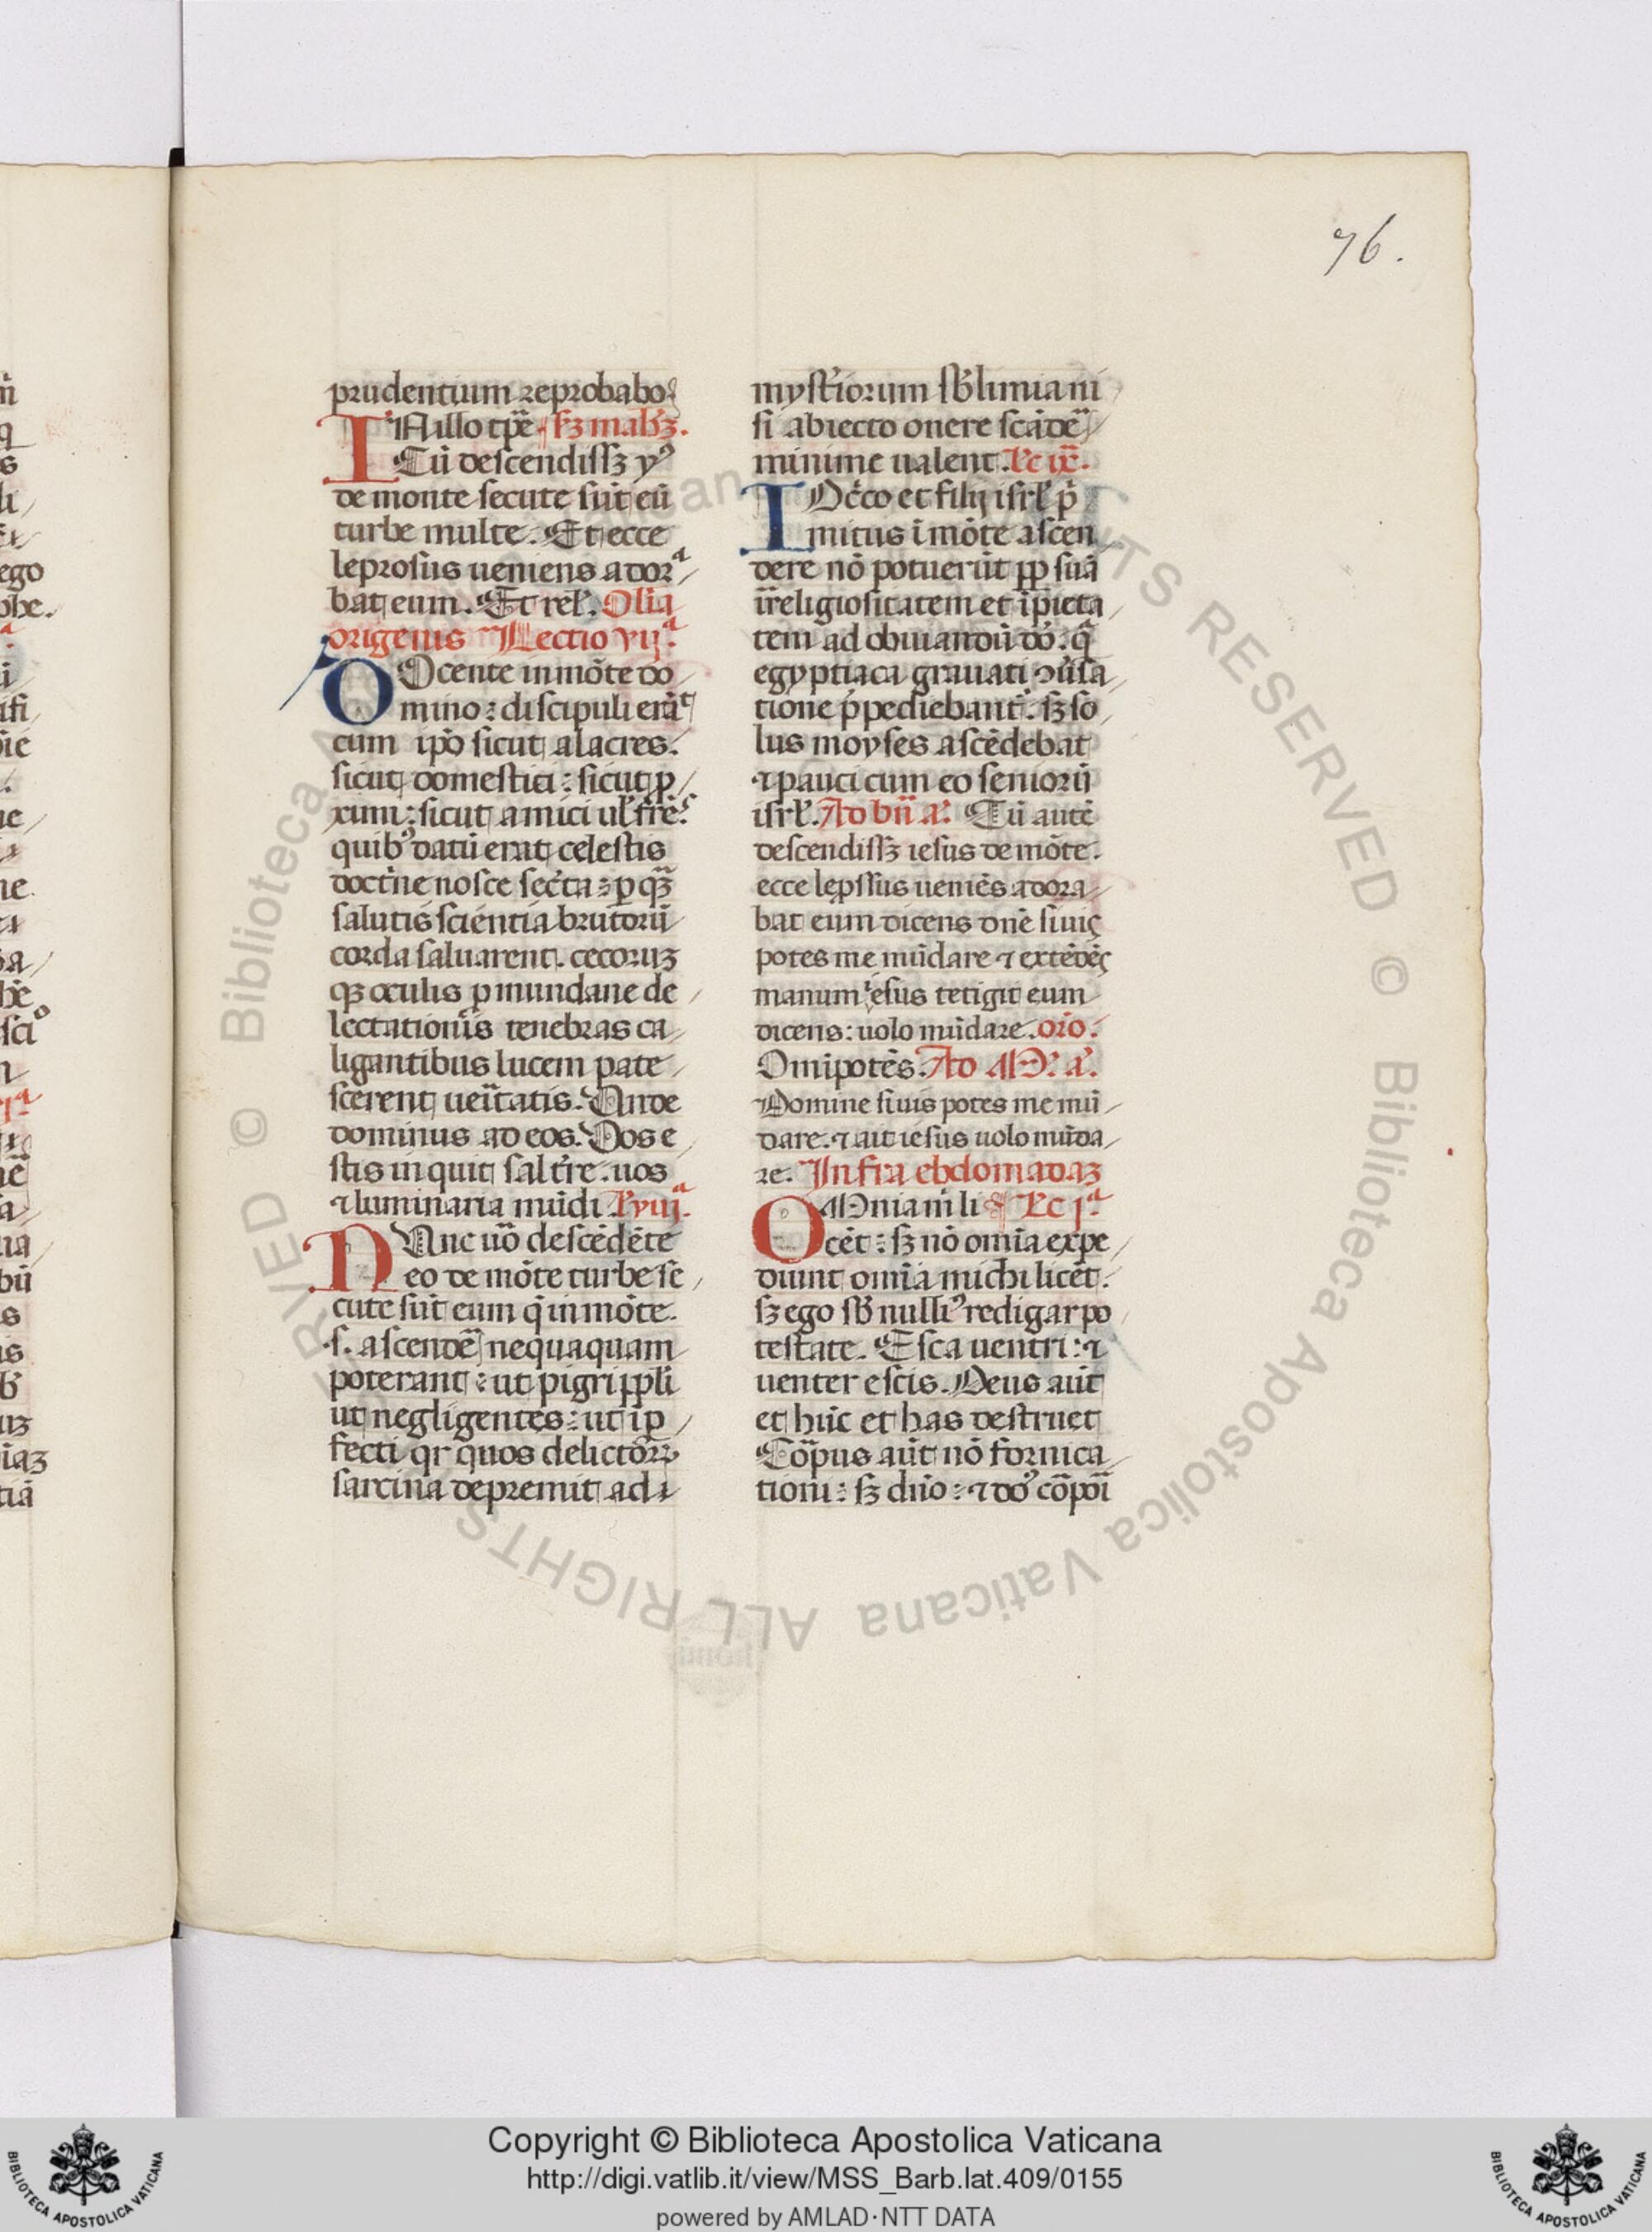 76.
prudentium reprobabo.
IN illo tp̄e. s̄ꝫ mathꝫ.
Cū descendissꝫ yꝰ
de monte secute sūt eū
turbe multe. Et ecce
leprosus ueniens adorᵃ
bat eum. Et rel̄. Olīa
origenis Lectio vijᵃ
DOcente in mōte do
mino: discipuli erāt
cum ip̄o sicut alacres.
sicut domestici: sicut ꝓ
xum: sicut amici ul̄ frēs
quibꝰ datū erat celestis
doctⁱne nosce sec̄ta: ꝑ qᷓꝫ
salutis scientia brutorū
corda saluarent. cecorūꝫ
qꝫ oculis ꝑ mundane de
lectationis tenebras ca
ligantibus lucem pate
scerent ueⁱtatis. Unde
dominus ad eos. Vos e
stis inquit sal tr̄re. uos
⁊ luminaria mūdi. l̄c viijᵃ.
NUnc uō descēdēte
eo de mōte turbe se
cute sūt eum qⁱ in mōte.
.s. ascende nequaquam
poterant: ut pigri ꝓpl̄i
ut negligentes: ut īꝑ
fecti qr quos delictoꝝ
sarcina depremit ad
myst̄iorum sb̄limia ni
si abiecto onere scāde
minime ualent. l̄c ix̄.
IOc̄co et filij isrl̄ pⁱ
mitus ī mōte ascen
dere nō potuerūt ꝓp̄ suā
irreligiositatem et īpieta
tem ad obuiandū dō. qᷓ
egyptiaca grauati ꝯūsa
tione p̄pediebant᷑. sꝫ so
lus moyses ascēdebat
⁊ pauci cum eo seniorū
isrl̄. Ad bn̄ a. Cū autē
descendissꝫ iesus de mōte.
ecce lep̄ssus ueniēs adora
bat eum dicens dn̄e si uis
potes me mūdare ⁊ extēdēs
manum iesus tetigit eum
dicens: uolo mūdare. or̄o.
Omīpotēs. Ad M. a.
Domine si uis potes me mū
dare. ⁊ ait iesus uolo mūda
re. Infra ebdomadaꝫ
OMnia mⁱ li l̄c jᵃ
cēt: sꝫ nō omīa expe
diunt omīa michi licēt.
sꝫ ego sb̄ nulliꝰ redigar po
testate. Esca uentri: ⁊
uenter escis. Deus aūt
et hūc et has destruet
Corpus aūt nō fornica
tioni: sꝫ dn̄o: ⁊ dōꝰ cōrpoi
Copyright © Biblioteca Apostolica Vaticana
http://digi.vatlib.it/view/MSS_Barb.lat.409/0155
powered by AMLAD·NTT DATA
BIBLIOTECA APOSTOLICA VATICANA
BIBLIOTECA APOSTOLICA VATICANA
© Biblioteca Apostolica Vaticana ALL RIGHTS RESERVED